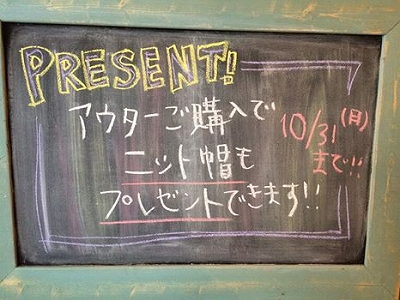 PRESENT!
アウターご購入で
ニット帽も
プレゼントできます!!
10/31(月)
まで!!